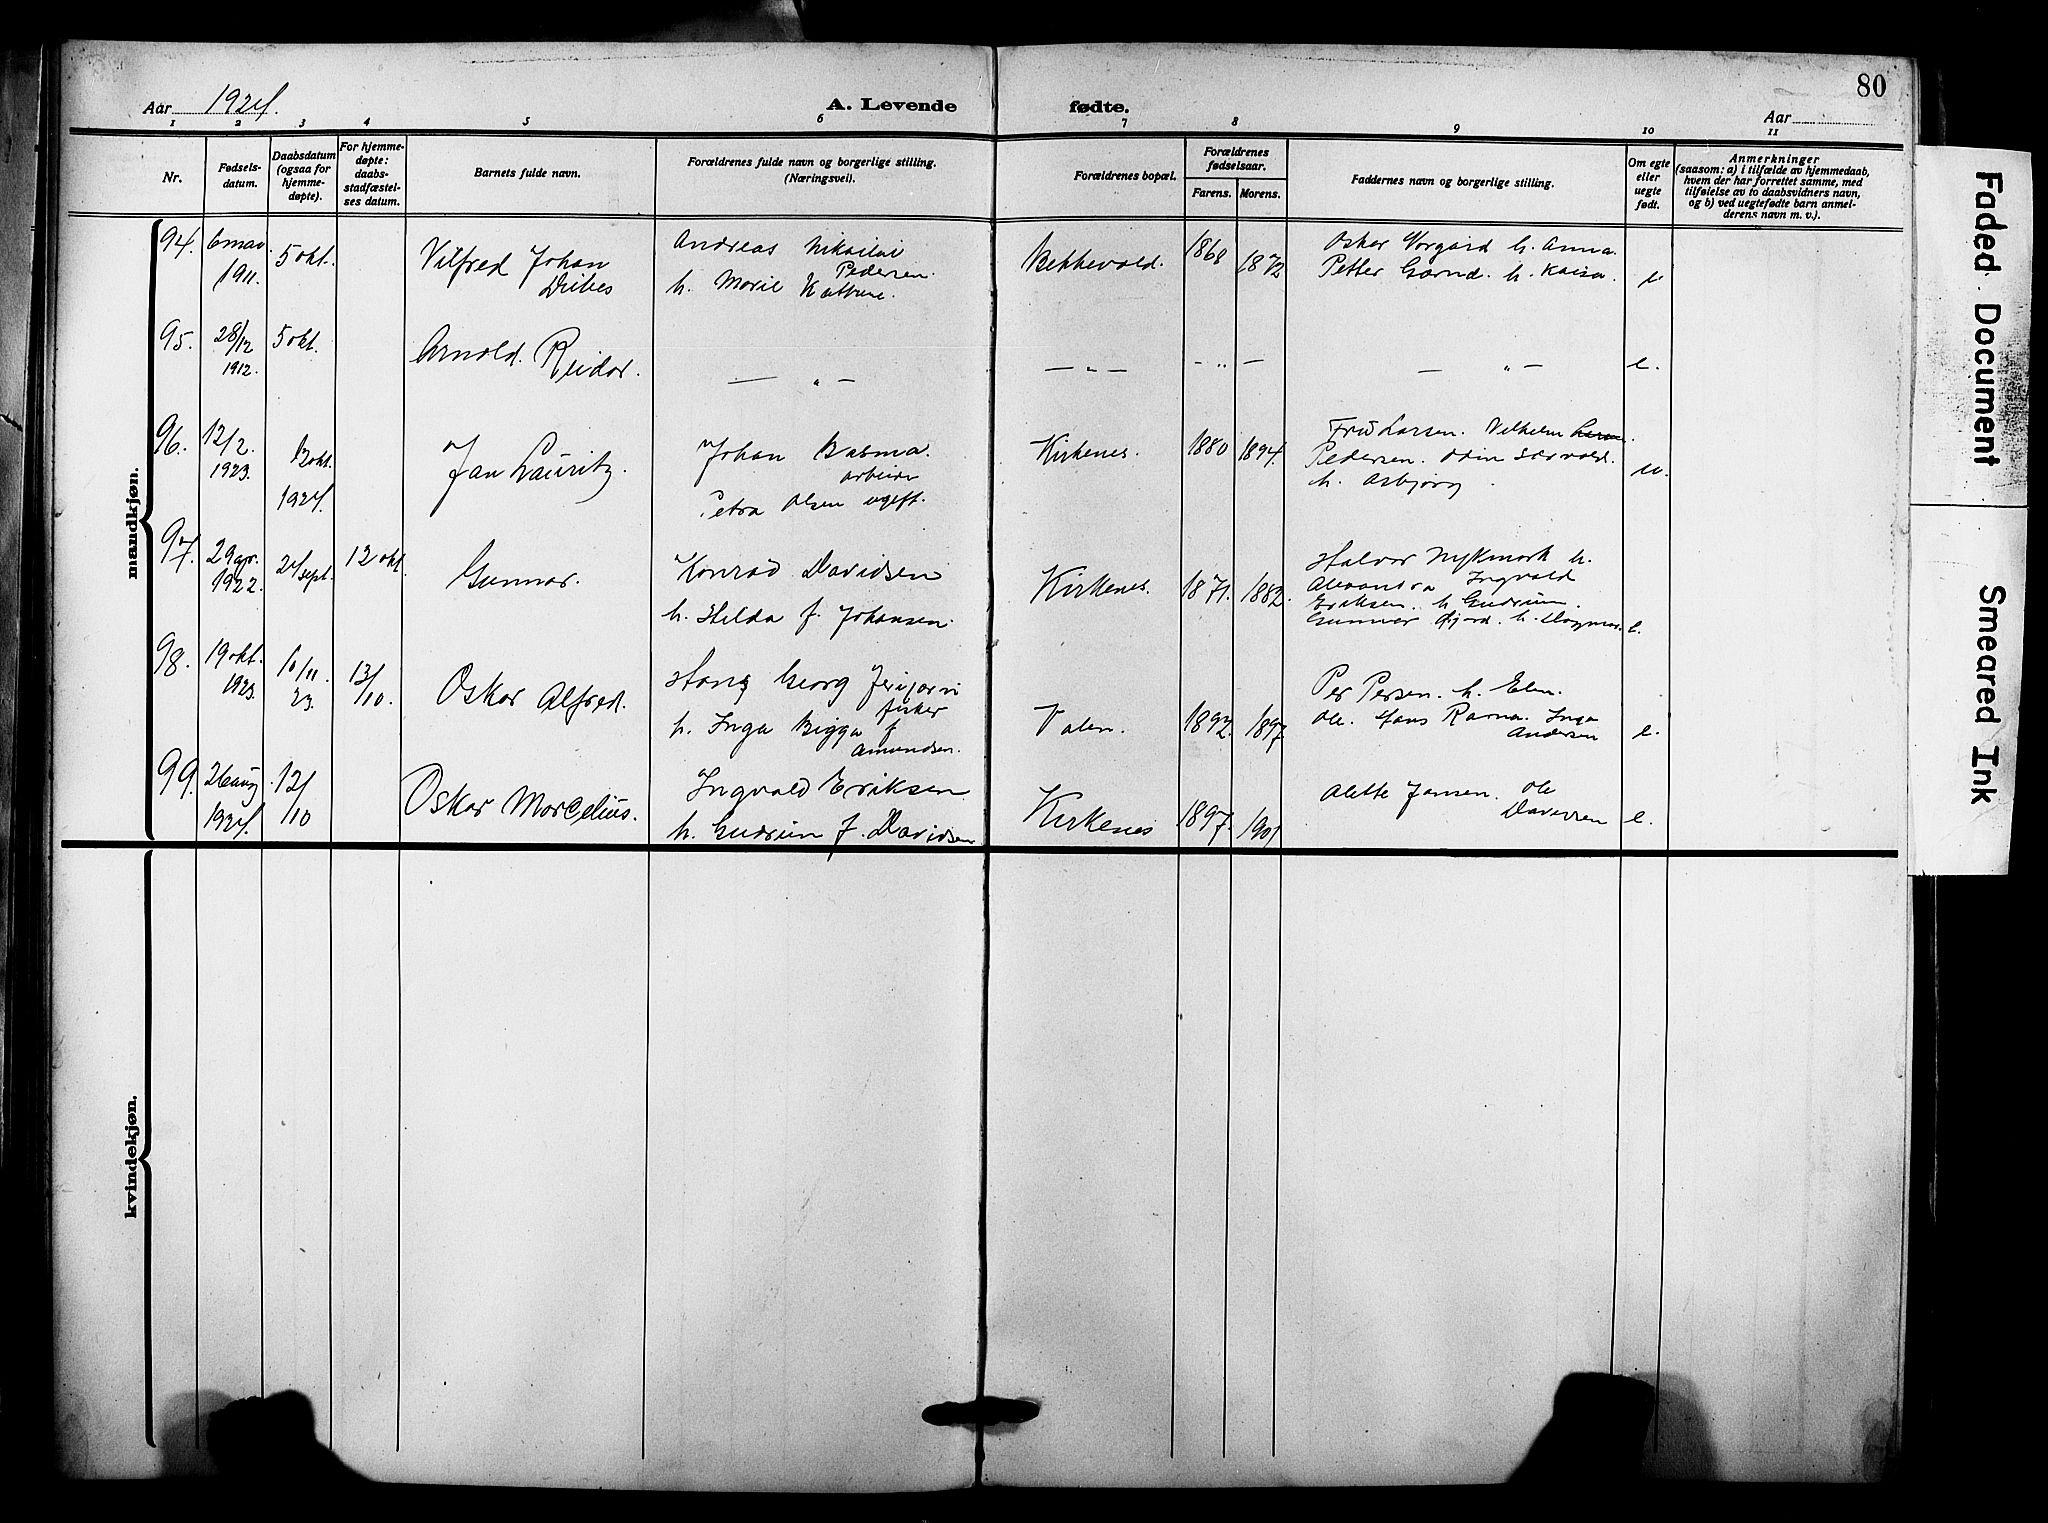 80
Aar 1924.
A. Levende fødte.
Aar
1 2 3 4 5 6 7 8 9 10 11
Nr.
Fødsels-
datum.
Daabsdatum
(ogsaa for
hjemme-
døpte).
For hjemme-
døpte:
daabs-
stadfæstel-
ses datum.
Barnets fulde navn.
Forældrenes fulde navn og borgerlige stilling.
(Næringsvei).
Forældrenes bopæl.
Forældrenes
fødselsaar.
Farens. Morens.
Faddernes navn og borgerlige stilling.
Om egte
eller
uegte
født.
Anmerkninger
(saasom: a) i tilfælde av hjemmedaab,
hvem der har forrettet samme, med
tilføielse av to daabsvidners navn,
og b) ved uegtefødte barn anmel-
derens navn m. v.).
mandkjøn.
94. 6 mai 1911. 5 okt. Vilfred Johan
Andreas Nikolai
Pedersen.
h. Marie
Bekkevold. 1868 1872
Oskar h. Anna
Petter h. Kaisa. e
95. 28/12 1912. 5 okt. Arnold Reidar. — „ — — „ — — „ — — „ — e.
96. 12/2. 1923. 12 okt. 1924. Jan Lauritz.
Johan Basma.
arbeider
Petra Olsen ugift.
Kirkenes. 1880 1894.
Larsen. Vilhelm
Pedersen. Odin
h. Asbjørg u.
97. 29 apr. 1922. 21 sept. 12 okt. Gunnar.
Konrad Davidsen
h. Hilda f. Johansen.
Kirkenes. 1871. 1882.
Halvor Nykmark h.
Ingvald
Eriksen. h. Gudrun.
Gunnar h. e.
98. 19 okt. 1923. 10/11 23. 13/10. Oskar Alfred.
Hans Georg
fisker
h. Inga Bigga f
Amundsen.
Valen. 1892. 1897
Per Persen. h. Elen.
Ole. Hans Inga
Andersen e.
99. 26 aug. 1924. 12/10 Oskar Marcelius.
Ingvald Eriksen
h. Gudrun f. Davidsen
Kirkenes 1897. 1901
Alette Jansen. Ole
e.
kvindekjøn.
Faded Document
Smeared Ink